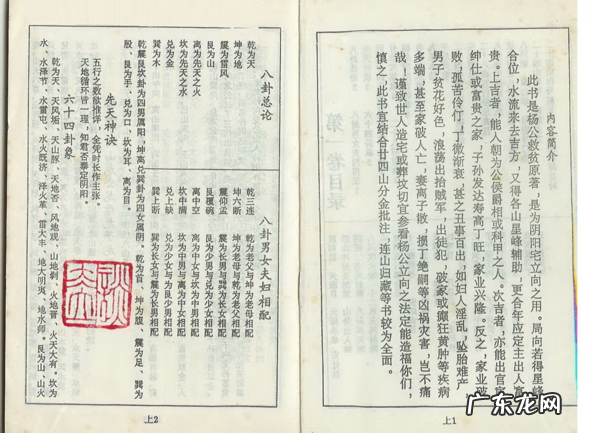 内容简介
此书是杨公救贫原著，是为阴阳宅立向之用。局向若得星峰
合位，水流来去吉方，又得各山星峰辅助，更合年应定主出人富
贵。上吉者，能人朝为公侯爵相或科甲之人。次吉者，亦能出官宦
绅仕或富贵之家，子孙发达寿高丁旺，家业兴隆。反之，家业破
败，孤苦伶仃，丁微渐衰，甚之丑事百出，如妇人淫乱，坠胎难产
男子贫花好色，浪荡出抬贼军，出徒犯、破家或癫狂黄肿等疾病
多端，甚至家破人亡，妻离子散，损丁绝嗣等凶祸灾害，岂不痛
哉！谨致世人造宅或葬坟切宜参看杨公立向之法定能造福你们，
慎之，此书宜结合廿四山分金批注，连山归藏等书较为全面。
上1
八卦总论
八卦男女夫妇相配
乾为天
乾三连
乾为老父与坤为老母相配
坤为地
坤六断
坤为老母与乾为老父相配
震为雷风
震仰盂
震为长男与巽为长女相配
艮为山
艮覆碗
艮为少男与兑为少女相配
离为先天之火
离中空
离为中女与坎为中男相配
坎为先天之水
坎中满
坎为中男与离为中女相配
兑为金
兑上缺
兑为少女与艮为少男相配
巽为木
巽上断
巽为长女与震为长男相配
乾震艮坎卦为四男属阳，坤离兑巽卦为四女属阴。乾为首、坤为腹、震为足、巽为
股、艮为手、兑为口、坎为耳、离为目。
先天神诀
五行之数欲推详，全凭时长作主张。
天地循环皆一理，知君否泰定阴阳。
六十四卦象
乾为天、天风垢、天山豚、天地否、风地观、山地剥、火地晋、火天大有。坎为
水、水泽节、水雷屯、水火既济、泽火革、雷火丰、地火明夷、地水师。艮为山、山火
上2
广东龙网